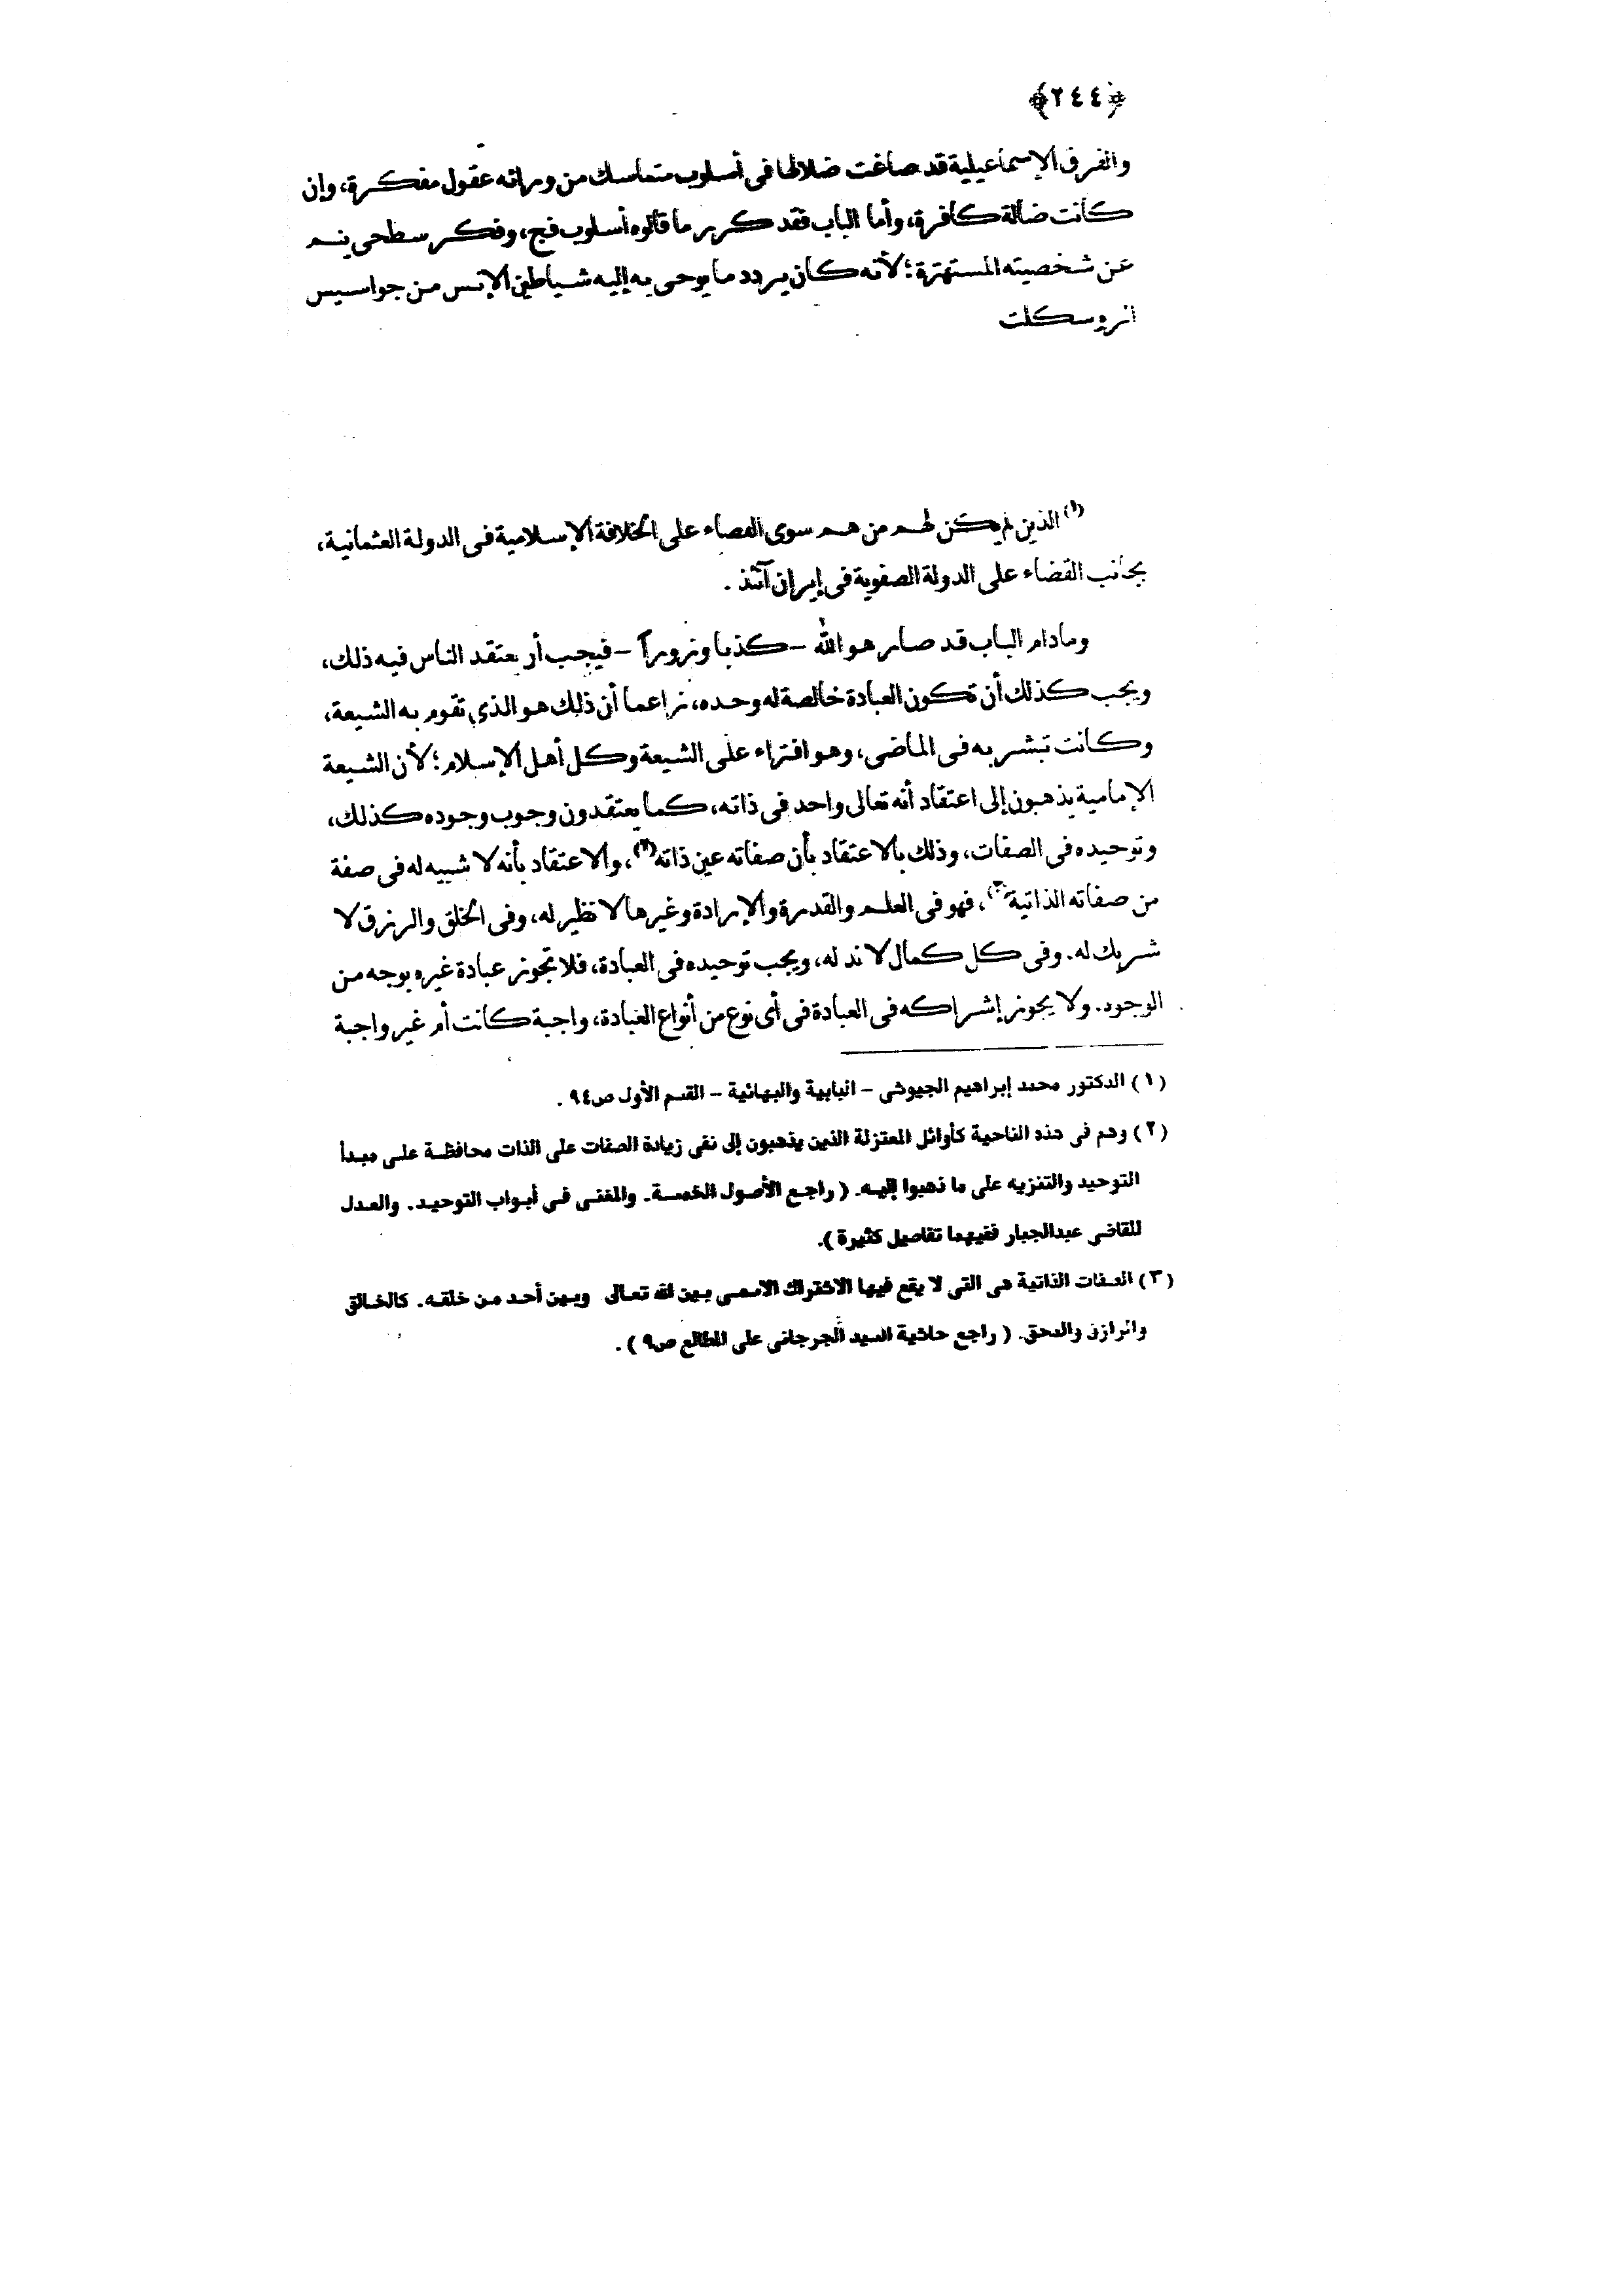 ﴿٢٤٤﴾
والفرق الإسماعيلية قد صاغت ضلالها فى أسلوب متماسك من ورائه عقول مفكرة، وإن
كانت ضالة كافرة، وأما الباب فقد كرر ما قالوه أسلوب فج، وفكر سطحى ينم
عن شخصيته المستهترة؛ لأنه كان يردد ما يوحى به إليه شياطين الإنس من جواسيس
الروس كلت
(١) الذين لم يكن لهم من هم سوى القصاء على الخلافة الإسلامية فى الدولة العثمانية،
بجانب القضاء على الدولة الصفوية فى إيران آنئذ .
ومادام الباب قد صار هو الله – كذبا وزوراً – فيجب أن يعتقد الناس فيه ذلك،
ويجب كذلك أن تكون العبادة خالصة له وحده، زاعما أن ذلك هو الذي تقوم به الشيعة،
وكانت تبشر به فى الماضى، وهو افتراء على الشيعة وكل أهل الإسلام؛ لأن الشيعة
الإمامية يذهبون إلى اعتقاد أنه تعالى واحد فى ذاته، كما يعتقدون وجوب وجوده كذلك،
وتوحيده فى الصفات، وذلك بالاعتقاد بأن صفاته عين ذاته(٢)، والاعتقاد بأنه لا شبيه له فى صفة
من صفاته الذاتية(٣)، فهو فى العلم والقدرة والإرادة وغيرها لا نظير له، وفى الخلق والرزق لا
شريك له. وفى كل كمال لا ند له، ويجب توحيده فى العبادة، فلا تجوز عبادة غيره بوجه من
الوجود. ولا يجوز إشراكه فى العبادة فى أى نوع من أنواع العبادة، واجبة كانت أم غير واجبة
(١) الدكتور محمد إبراهيم الجيوشى – البابية والبهائية – القسم الأول ص٩٤ .
(٢) وهم فى هذه الناحية كأوائل المعتزلة الذين يذهبون إلى نفى زيادة الصفات على الذات محافظة على مبدأ
التوحيد والتنزيه على ما ذهبوا إليه. ( راجع الأصول الخمسة. والمغنى فى أبواب التوحيد. والعدل
للقاضى عبدالجبار ففيهما تفاصيل كثيرة ).
(٣) الصفات الذاتية هى التى لا يقع فيها الاشتراك الاسمى بين الله تعالى وبين أحد من خلقه. كالخالق
والرازق والمحق. ( راجع حاشية السيد الجرجانى على المطالع ص٩ ) .